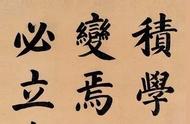 積學
變焉
必立